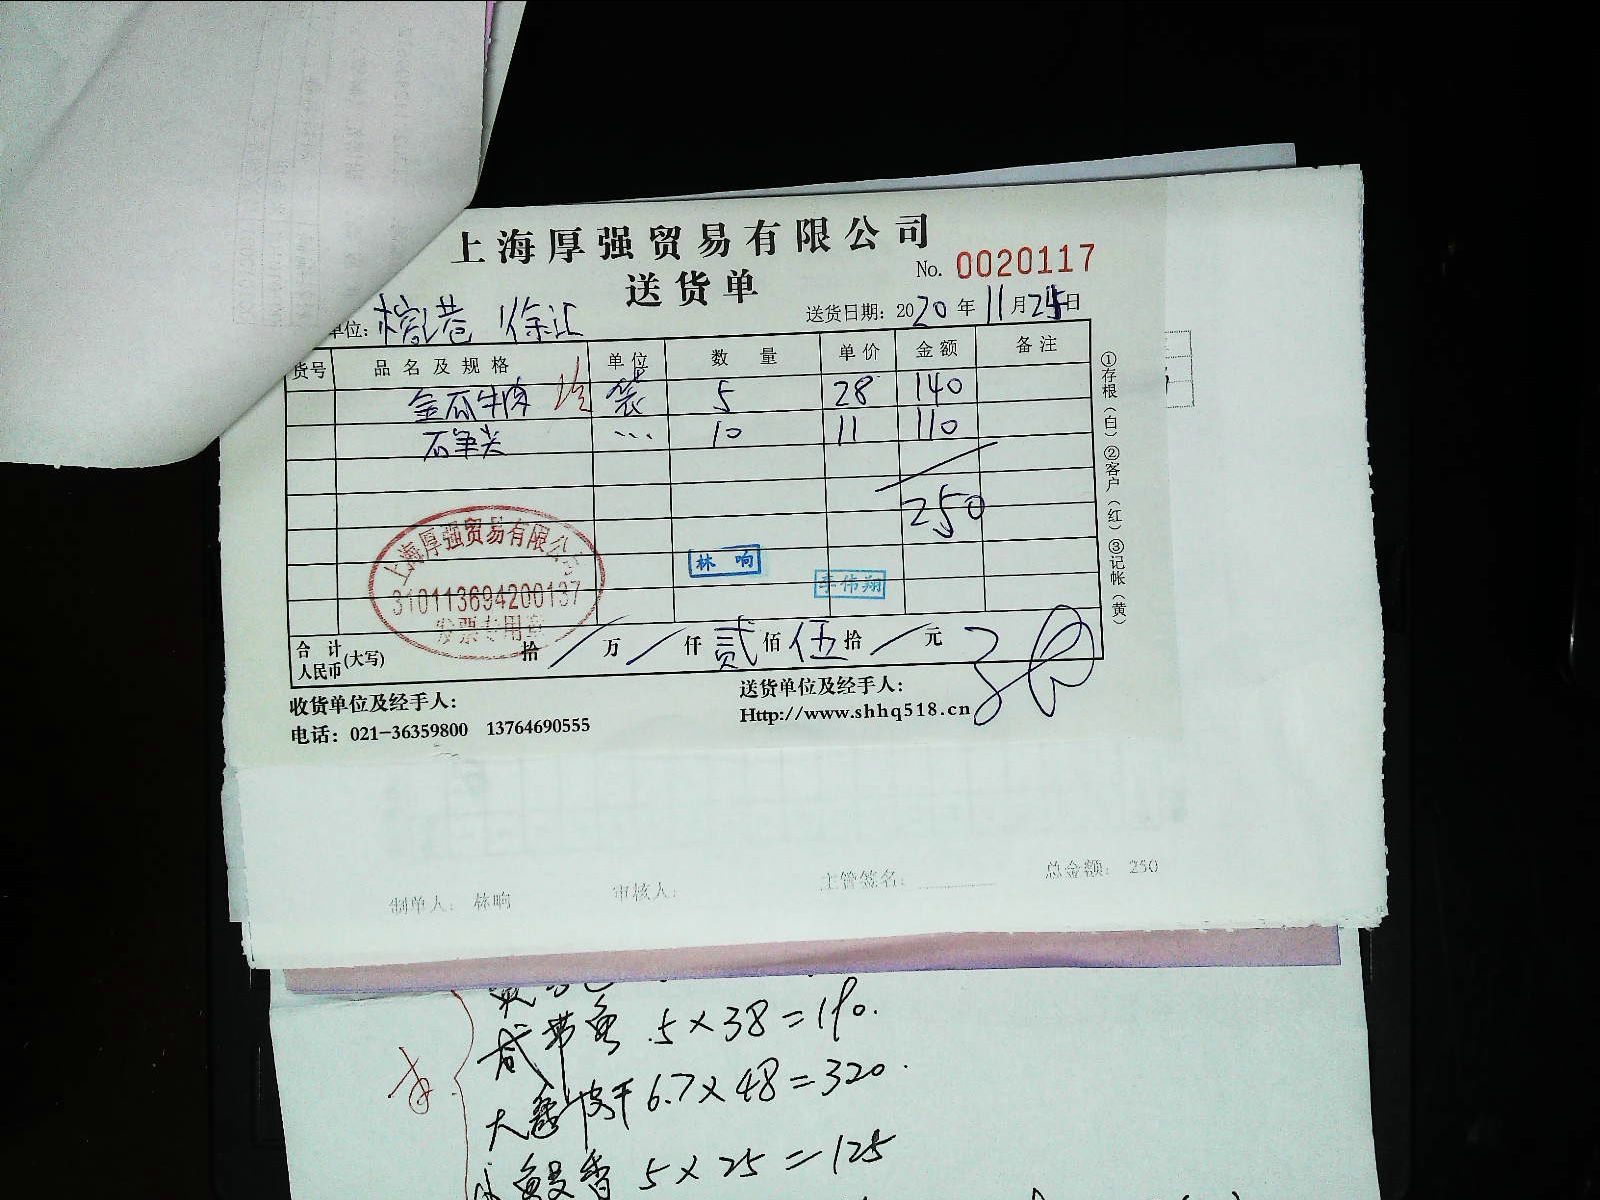 上海厚强贸易有限公司
送货单
No. 0020117
单位: 榕港 徐汇
送货日期: 2020年11月25日
货号 品名及规格 单位 数量 单价 金额 备注
金瓜牛肉 袋 5 28 140
石笔尖 ... 10 11 110
250
①存根(白)②客户(红)③记帐(黄)
上海厚强贸易有限公司
310113694200137
发票专用章
林响
李伟翔
合计人民币(大写) 拾/万/仟贰佰伍拾/元
收货单位及经手人:
送货单位及经手人:
电话: 021-36359800 13764690555
Http://www.shhq518.cn
制单人: 林响 审核人: 主管签名: 总金额: 250
咸带鱼 5×38=190.
大鳗皮干 6.7×48=320.
鳗香 5×25=125